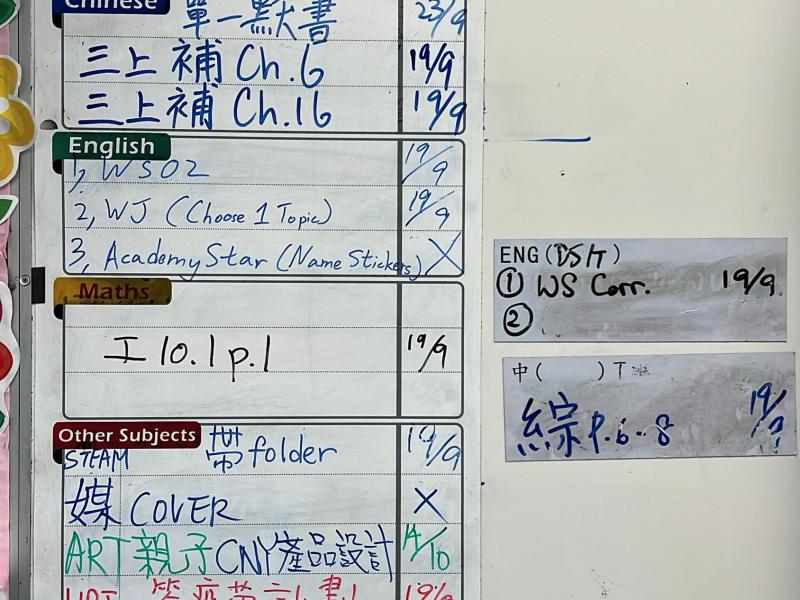 Chinese
單一默書 23/9
三上補 Ch.6 19/9
三上補 Ch.16 19/9
English
1, WS02 19/9
2, WJ (Choose 1 Topic) 19/9
3, Academy Star (Name Stickers) X
Maths
工10.1 p.1 19/9
Other Subjects
STEAM 帶folder 19/9
媒 COVER X
ART 親子CNY產品設計 14/10
19/9
ENG (DS/T)
① WS Corr. 19/9
②
中( )T
綜 P.6-8 19/9